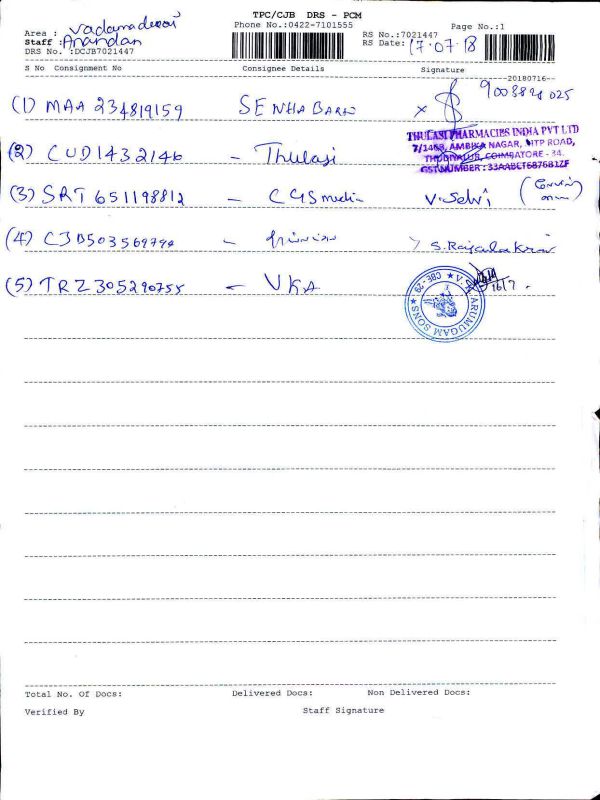 TPC/CJB DRS - PCM
Phone No.:0422-7101555
Page No.:1
Area :
Staff : Anandan
DRS No. :DCJB7021447
RS No.:7021447
RS Date: 17.07.18
S No Consignment No Consignee Details Signature
20180716
(1) MAA 234819159
(2) CUD1432146 - Thulasi
THULASI PHARMACIES INDIA PVT LTD
7/146B, AMBIKA NAGAR, NTP ROAD,
COIMBATORE - 34.
GST NUMBER : 33AABCT6876B1ZF
(3) SRT 651198812 - CGS media V. Selvi
(4) CJB503569794 -
(5) TRZ305290755 - VKA 16/7.
V.S. ARUMUGAM SONS ★ CBE - 29 ★
Total No. Of Docs: Delivered Docs: Non Delivered Docs:
Verified By Staff Signature